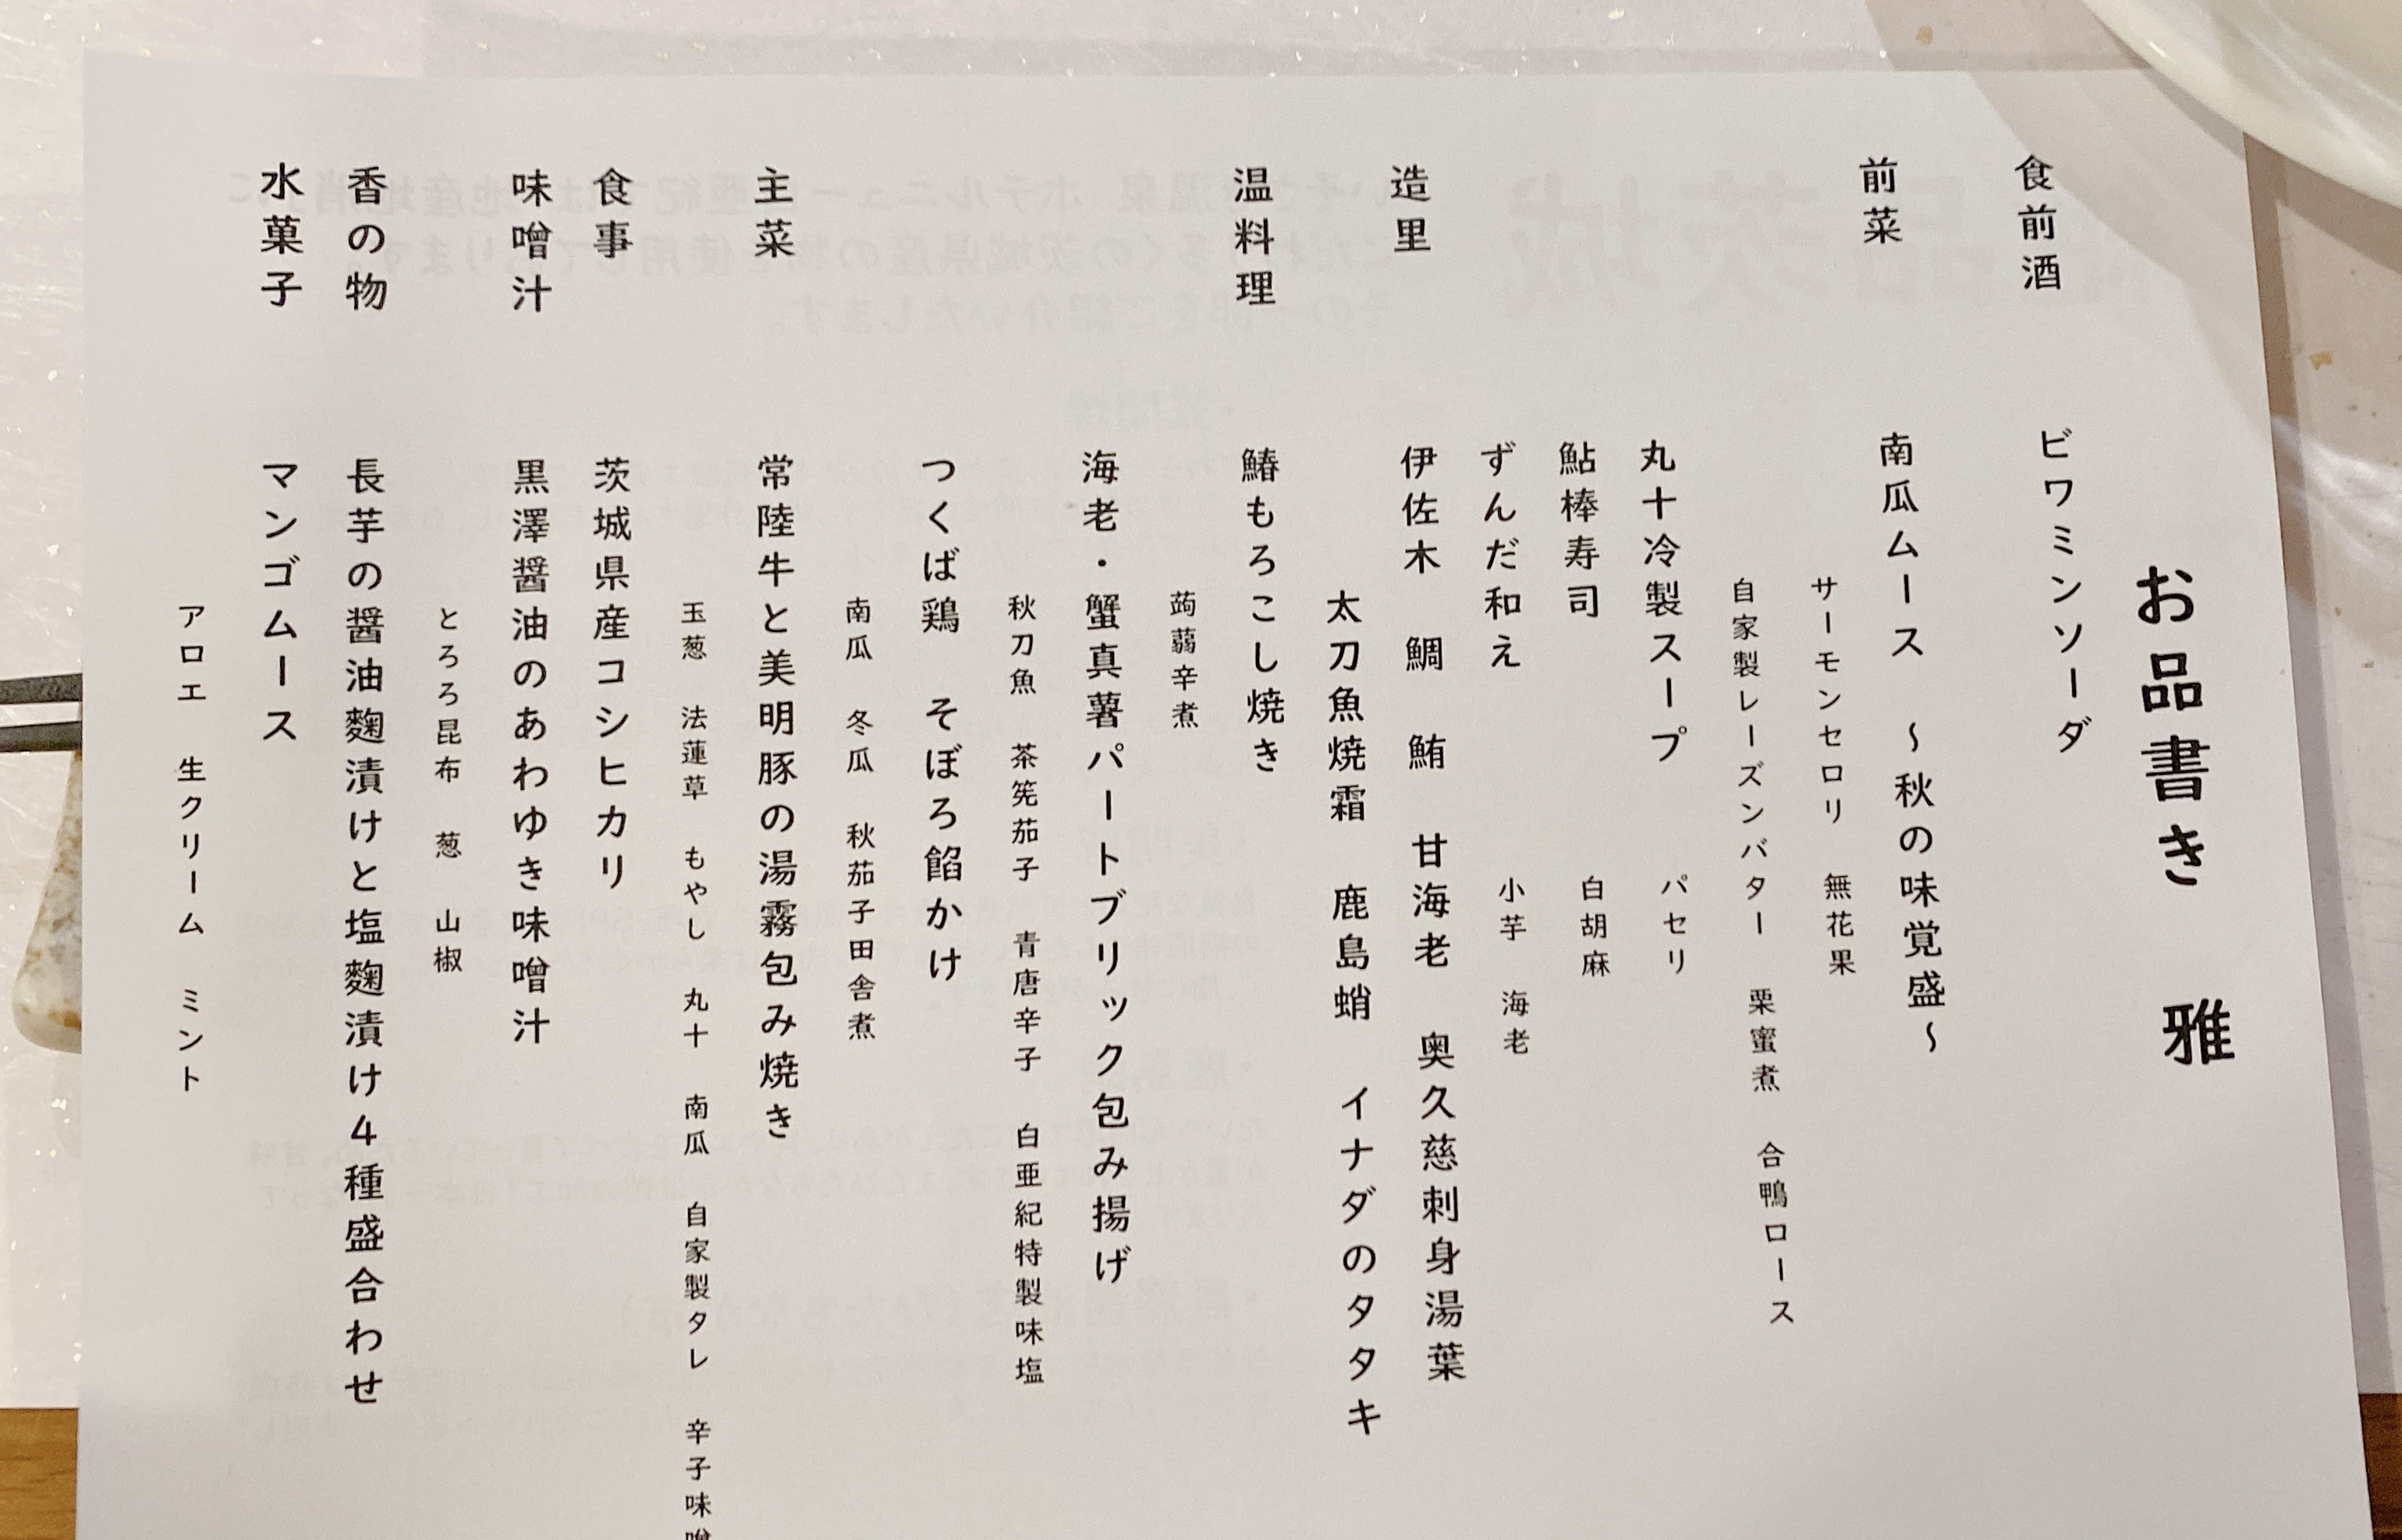 お品書き　雅
食前酒　ビワミンソーダ
前菜　南瓜ムース　～秋の味覚盛～
サーモンセロリ　無花果
自家製レーズンバター　栗蜜煮　合鴨ロース
丸十冷製スープ　パセリ
鮎棒寿司　白胡麻
ずんだ和え　小芋　海老
造里　伊佐木　鯛　鮪　甘海老　奥久慈刺身湯葉
太刀魚焼霜　鹿島蛸　イナダのタタキ
温料理　鰆もろこし焼き
蒟蒻辛煮
海老・蟹真薯パートブリック包み揚げ
秋刀魚　茶筅茄子　青唐辛子　白亜紀特製味塩
つくば鶏　そぼろ餡かけ
南瓜　冬瓜　秋茄子田舎煮
主菜　常陸牛と美明豚の湯霧包み焼き
玉葱　法蓮草　もやし　丸十　南瓜　自家製タレ　辛子味噌
食事　茨城県産コシヒカリ
味噌汁　黒澤醤油のあわゆき味噌汁
とろろ昆布　葱　山椒
香の物　長芋の醤油麴漬けと塩麴漬け４種盛合わせ
水菓子　マンゴムース
アロエ　生クリーム　ミント